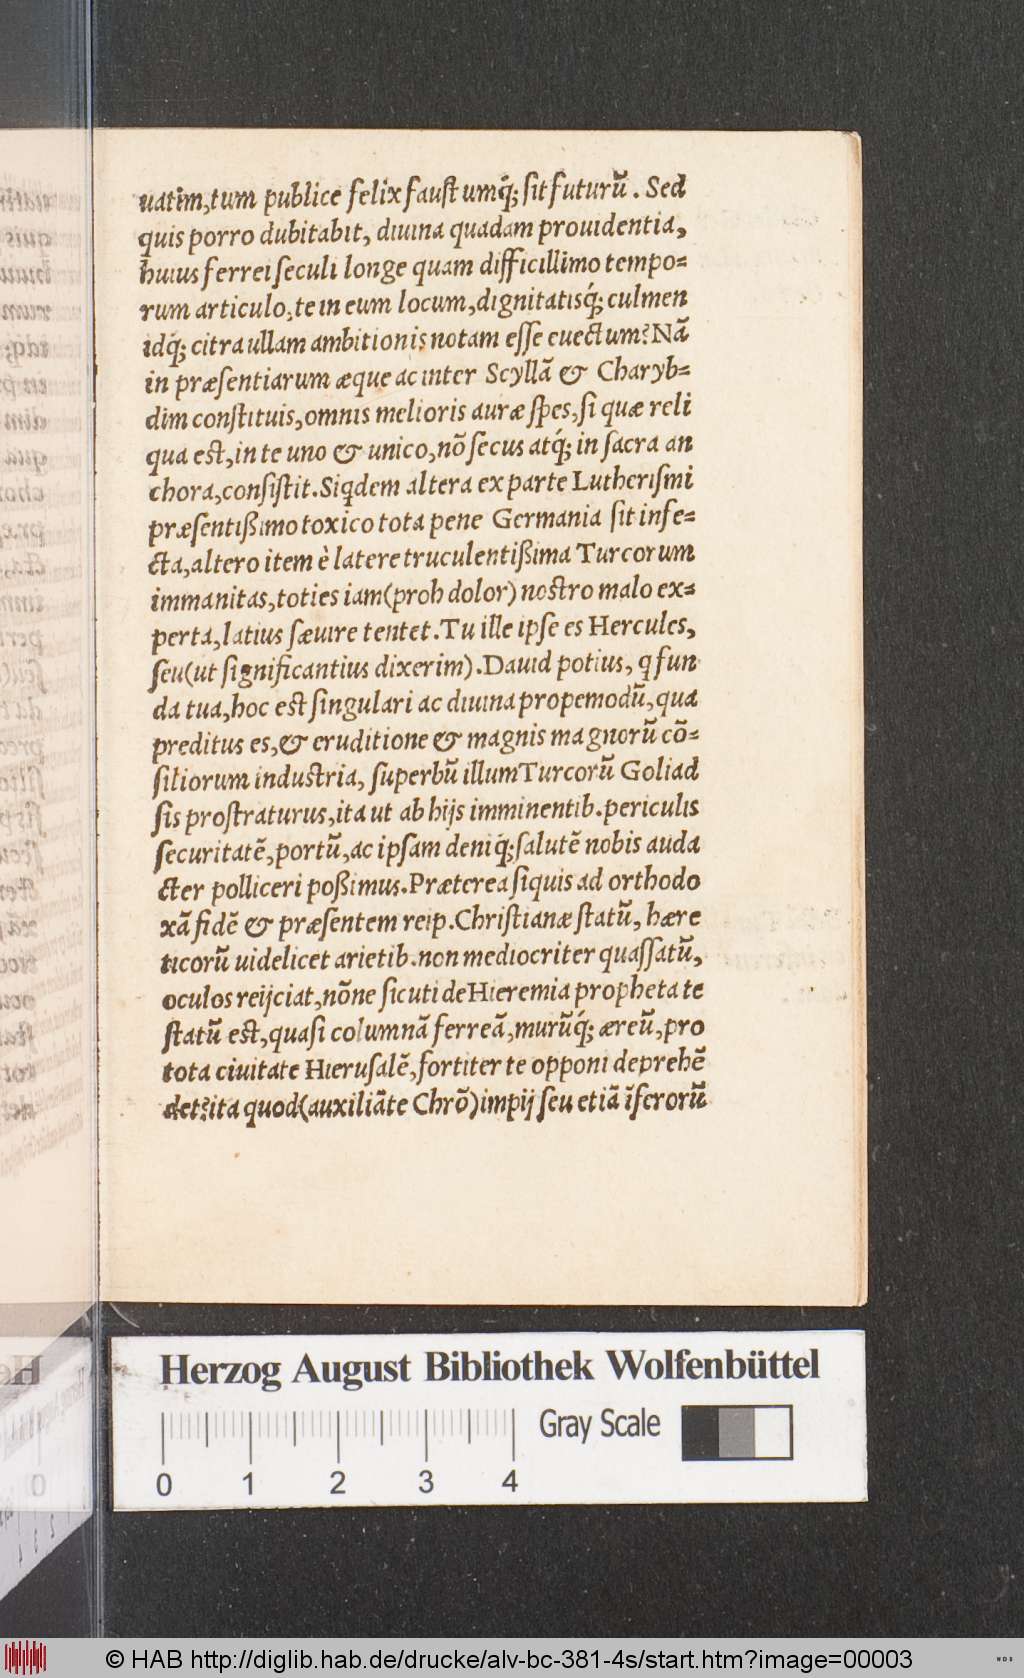 uatim,tum publice felix faustumq́; sit futurũ. Sed
quis porro dubitabit, diuina quadam prouidentia,
huius ferrei seculi longe quam difficillimo tempo=
rum articulo,te in eum locum,dignitatisq́; culmen
idq́; citra ullam ambitionis notam esse euectum? Nã
in præsentiarum æque ac inter Scyllã & Charyb=
dim constituis,omnis melioris auræ spes,si quæ reli
qua est,in te uno & unico,nõ secus atq́; in sacra an
chora,consistit.Siqdem altera ex parte Lutherismi
præsentißimo toxico tota pene Germania sit infe=
cta,altero item è latere truculentißima Turcorum
immanitas,toties iam(proh dolor) nostro malo ex=
perta,latius sæuire tentet.Tu ille ipse es Hercules,
seu(ut significantius dixerim).Dauid potius, q fun
da tua,hoc est singulari ac diuina propemodũ,qua
preditus es,& eruditione & magnis magnorũ cõ=
siliorum industria, superbũ illum Turcorũ Goliad
sis prostraturus,ita ut ab hijs imminentib.periculis
securitatẽ,portũ,ac ipsam deniq́;salutẽ nobis auda
cter polliceri poßimus.Præterea siquis ad orthodo
xã fidẽ & præsentem reip.Christianæ statũ, hære
ticorũ uidelicet arietib.non mediocriter quassatũ,
oculos reijciat,nõne sicuti de Hieremia propheta te
statũ est,quasi columnã ferreã,murũq́; æreũ,pro
tota ciuitate Hierusalẽ,fortiter te opponi deprehẽ
det?ita quod(auxiliãte Chrõ)impij seu etiã ĩferorũ
Herzog August Bibliothek Wolfenbüttel
Gray Scale
0 1 2 3 4
© HAB http://diglib.hab.de/drucke/alv-bc-381-4s/start.htm?image=00003